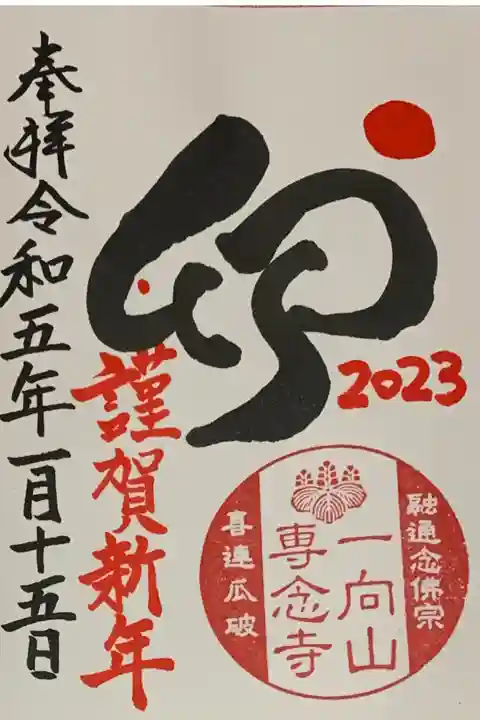 奉拝令和五年一月十五日
卯
2023
謹賀新年
融通念佛宗
一向山
専念寺
喜連瓜破